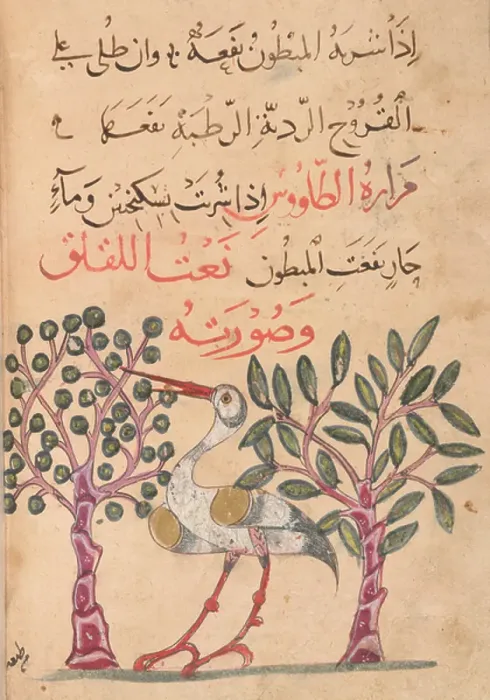 إذَا شربهُ المبْطُون نَفَعَهُ وان طُلى على
القُرُوُح الرّديّةِ الرّطبَةِ نَفَعَهَا
مَرارهُ الطّاووُس إذا شُرِبَت بسكنجبين وَمآءٍ
حَارٍ نفعَتِ المَبطون نَعْتُ اللقلق
وَصُوُرَتهُ